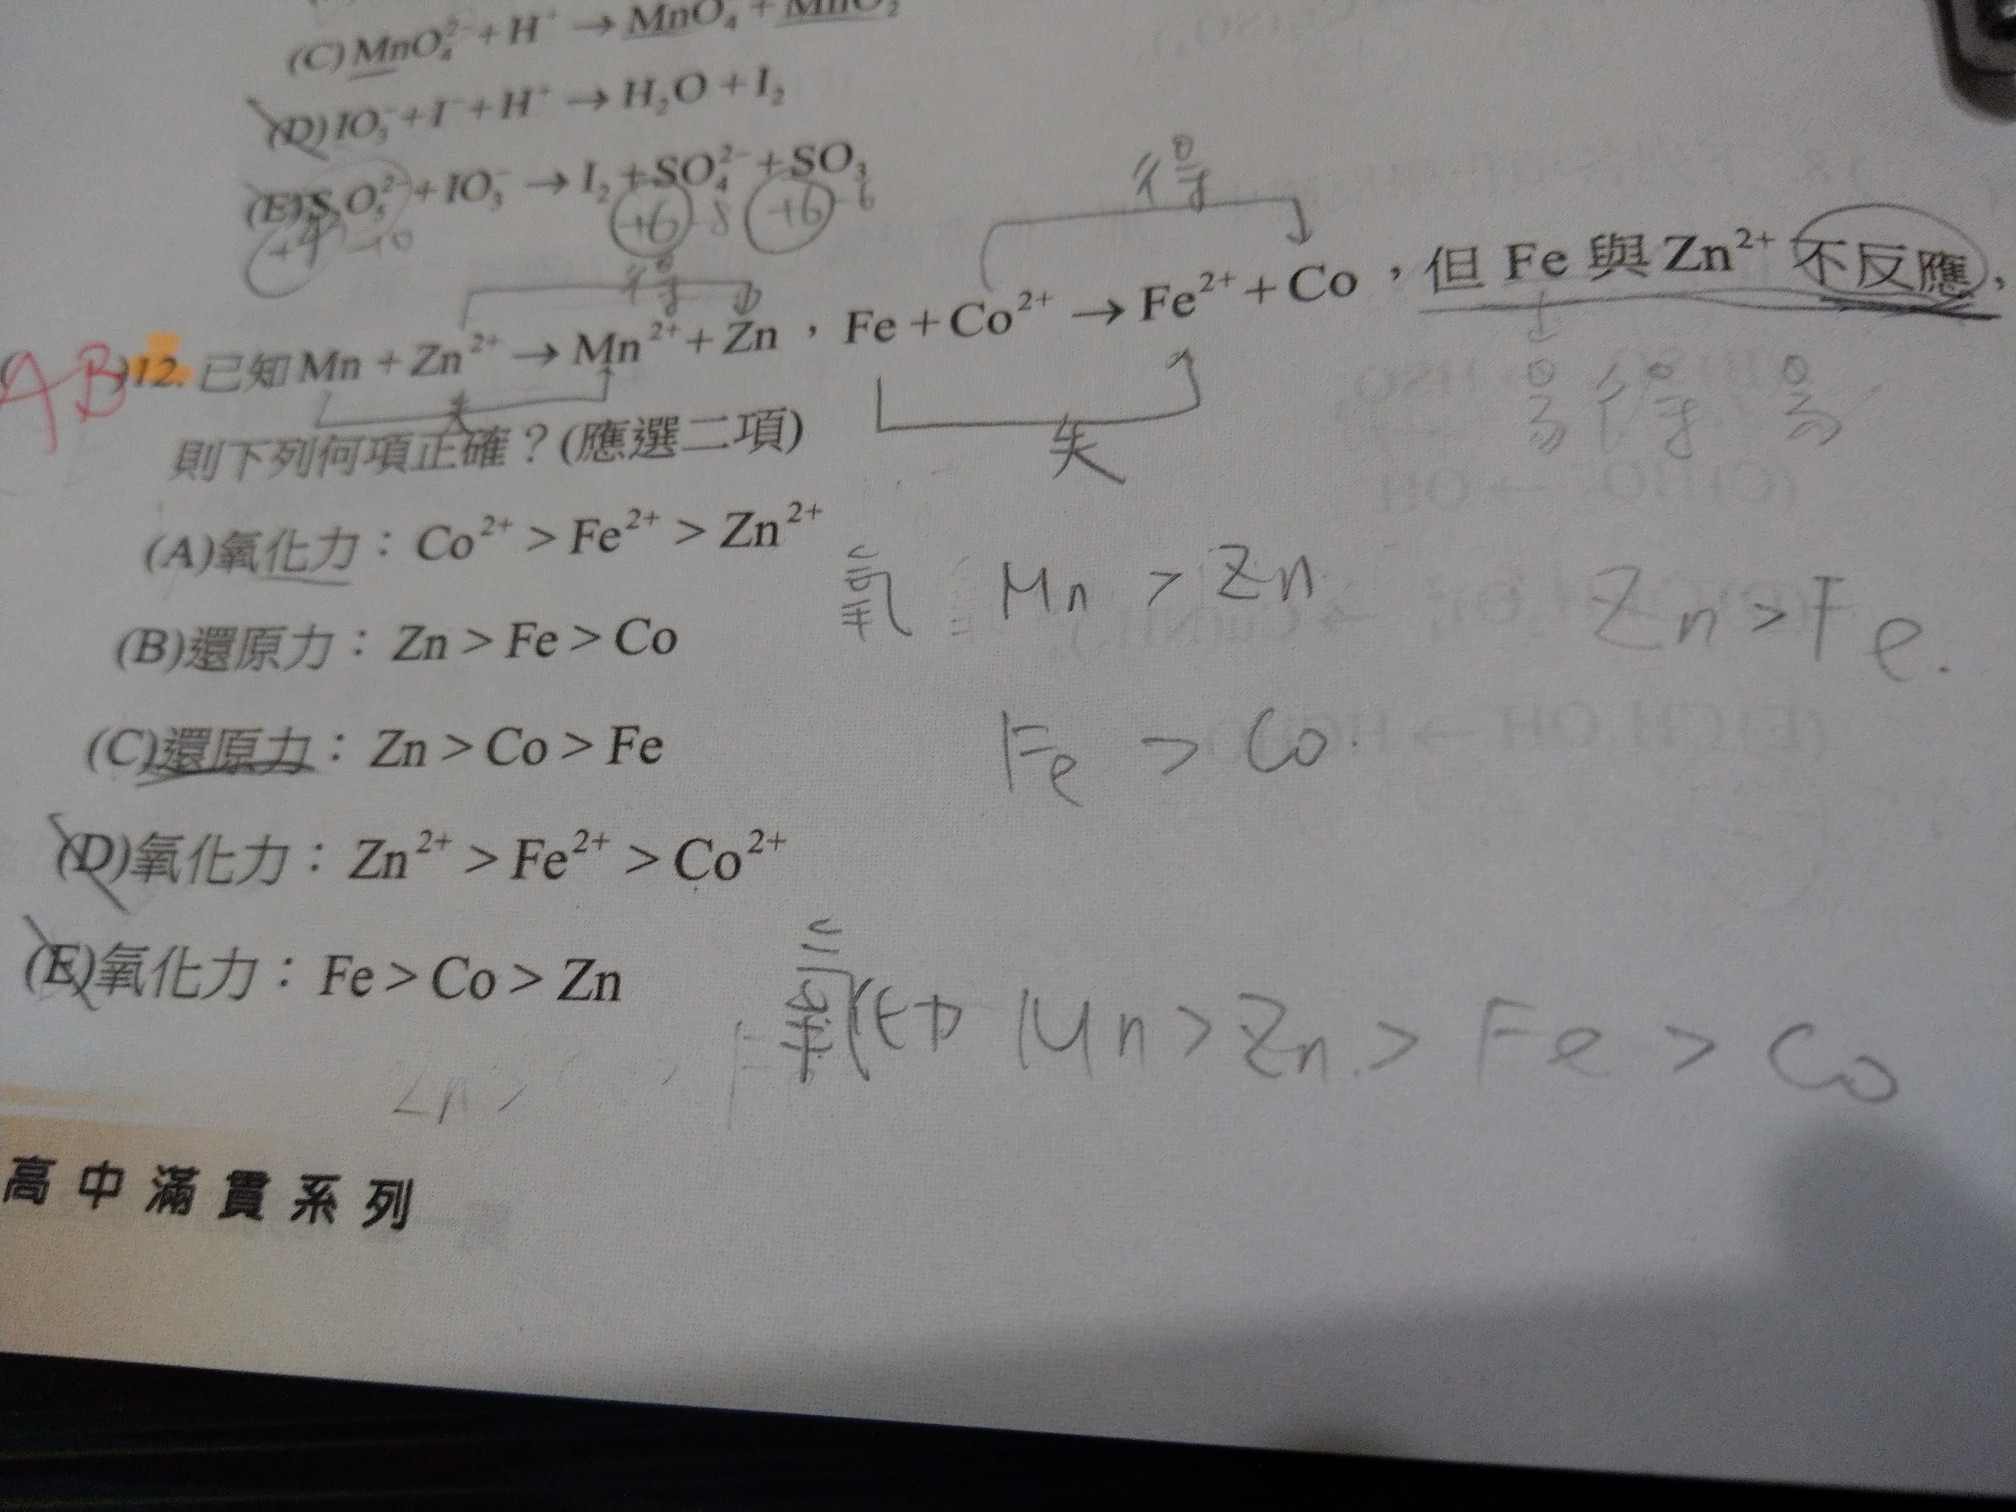 (C) MnO₄²⁻ + H⁺ → MnO₄⁻ + MnO₂
(D) IO₃⁻ + I⁻ + H⁺ → H₂O + I₂
(E) S₂O₅²⁻ + IO₃⁻ → I₂ + SO₄²⁻ + SO₃
+4 -10 +6 -8 +6 -6
得
得
AB )12. 已知 Mn + Zn²⁺ → Mn²⁺ + Zn，Fe + Co²⁺ → Fe²⁺ + Co，但 Fe 與 Zn²⁺ 不反應，
失
失
易 得 易
則下列何項正確？(應選二項)
(A)氧化力：Co²⁺ > Fe²⁺ > Zn²⁺
氧 : Mn > Zn Zn > Fe.
(B)還原力：Zn > Fe > Co
(C)還原力：Zn > Co > Fe
Fe > Co.
(D)氧化力：Zn²⁺ > Fe²⁺ > Co²⁺
(E)氧化力：Fe > Co > Zn
氧化力 Mn > Zn > Fe > Co
Zn >
高中滿貫系列